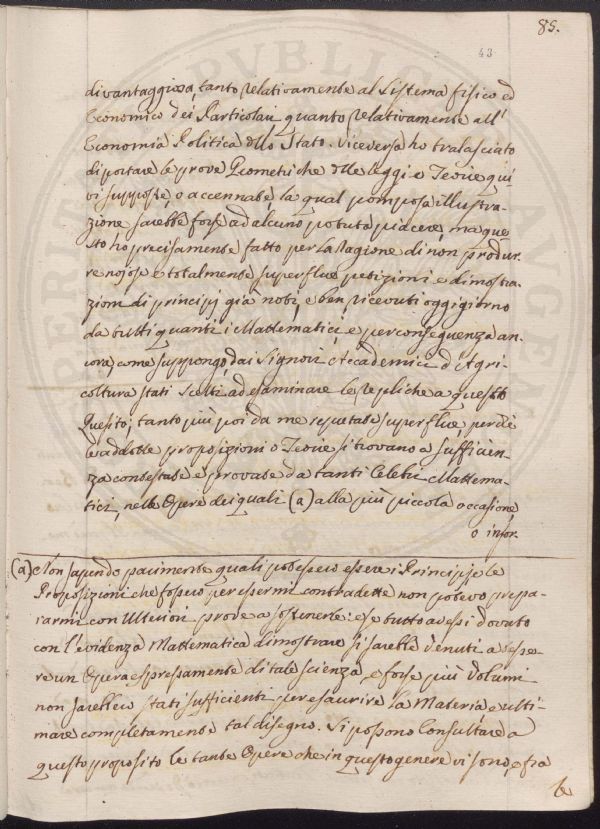 85.
43
divantaggiosa, tanto relativamente al Sistema fisico ed
Economico dei Particolari quanto relativamente all'
Economia Politica dello Stato. Viceversa ho tralasciato
di portare le prove Geometriche delle leggi e Teorie qui-
vi supposte, o accennate, la qual pomposa illustra-
zione sarebbe forse ad alcuno potuta piacere, ma que-
sto ho precisamente fatto per la ragione di non produr-
re nojose e totalmente superflue petizioni e dimostra-
zioni di principj già noti, e ben ricevuti oggigiorno
da tutti quanti i Mattematici, e per conseguenza an-
cora, come suppongo, dai Signori Accademici d'Agri-
coltura stati scelti ad esaminare le repliche a questo
Quesito; tanto più poi da me reputate superflue, perchè
le addotte proposizioni o Teorie si trovano a sufficien-
za contestate e provate da tanti Celebri Mattema-
tici, nelle Opere dei quali (a) alla più piccola occasione,
o insor-
(a) Non sapendo parimente quali potessero essere i Principj e le
Proposizioni che fossero per essermi contradette non potevo prepa-
rarmi con Ulteriori prove a sostenerle: e se tutto avessi dovuto
con l'evidenza Mattematica dimostrare si sarebbe venuti a tesse-
re un Opera espressamente di tale scienza, e forse più Volumi
non sarebbero stati sufficienti per esaurire la Materia e ulti-
mare completamente tal disegno. Si possono Consultare a
questo proposito le tante Opere che in questo genere vi sono, e fra
le